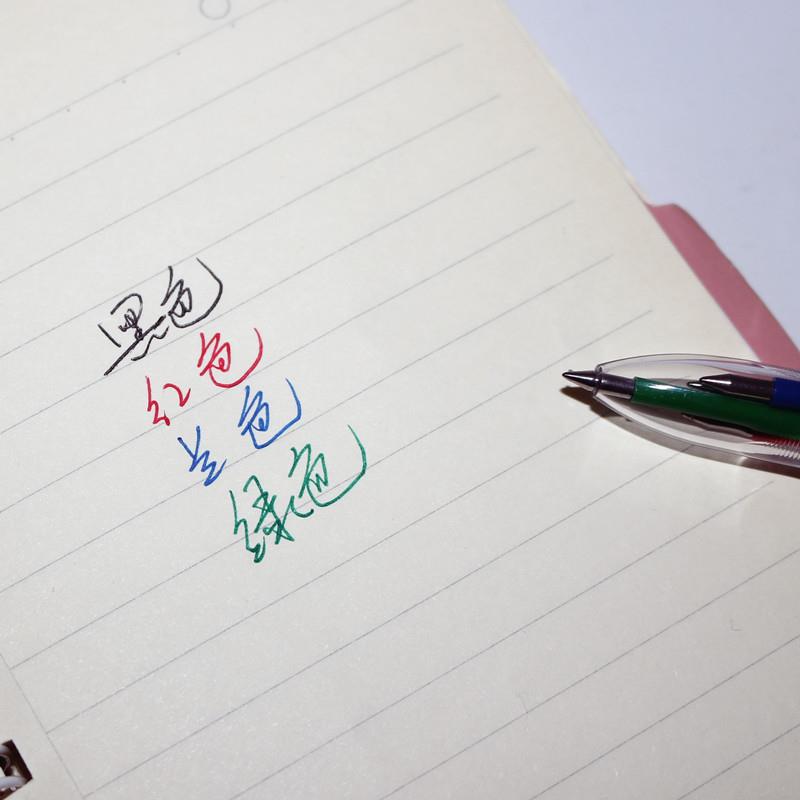 黑色
红色
兰色
绿色